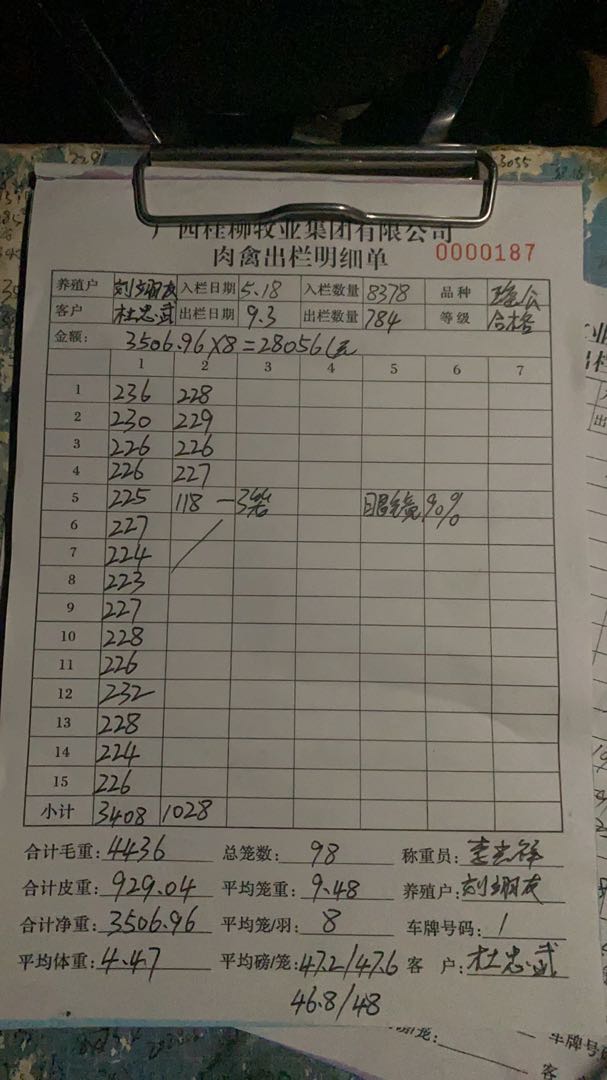 广西桂柳牧业集团有限公司
肉禽出栏明细单 0000187
养殖户 刘朝友 入栏日期 5.18 入栏数量 8378 品种 瑶公
客户 杜忠武 出栏日期 9.3 出栏数量 784 等级 合格
金额: 3506.96×8=28056元
1 2 3 4 5 6 7
1 236 228
2 230 229
3 226 226
4 226 227
5 225 118 一3笼 眼镜90%
6 227
7 224
8 223
9 227
10 228
11 226
12 232
13 228
14 224
15 226
小计 3408 1028
合计毛重: 4436 总笼数: 98 称重员: 李光祥
合计皮重: 929.04 平均笼重: 9.48 养殖户: 刘朝友
合计净重: 3506.96 平均笼/羽: 8 车牌号码: /
平均体重: 4.47 平均磅/笼: 47.2/47.6 客户: 杜忠武
46.8/48